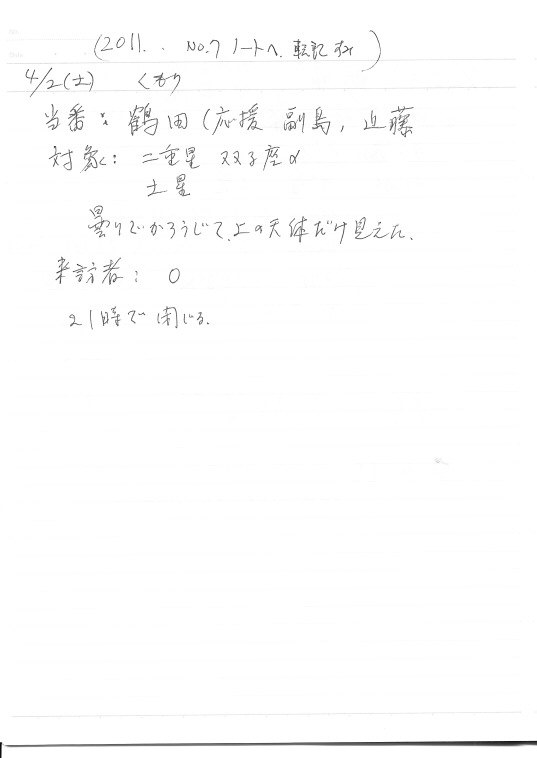 (2011. No.7 ノートへ 転記すみ)
4/2(土) くもり
当番: 鶴田 (応援 副島, 近藤
対象: 二重星 双子座α
土星
曇りでかろうじて、上の天体だけ見えた.
来訪者: 0
21時で閉じる.